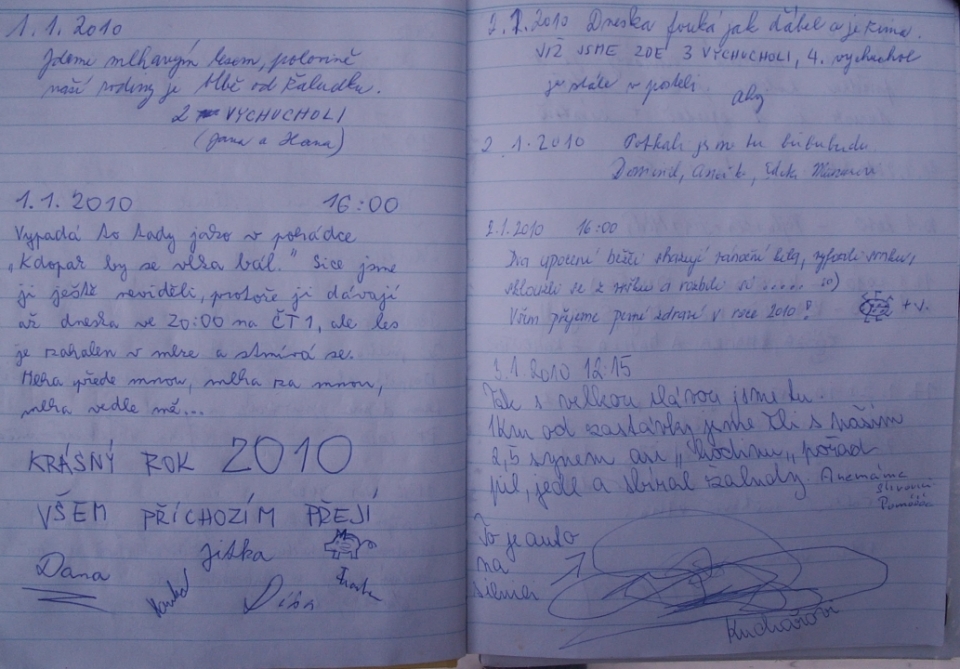 1.1.2010
Jdeme mlhavým lesem, polovině
naší rodiny je blbě od žaludku.
2 VÝCHUCHOLI
(Jana a Hana)
1.1.2010 16:00
Vypadá to tady jako v pohádce
„Kdopak by se vlka bál." Sice jsme
ji ještě neviděli, protože ji dávají
až dneska ve 20:00 na ČT1, ale les
je zahalen v mlze a stmívá se.
Mlha přede mnou, mlha za mnou,
mlha vedle mě...
KRÁSNÝ ROK 2010
VŠEM PŘÍCHOZÍM PŘEJÍ
Jitka
Dana
2.1.2010 Dneska fouká jak ďábel a je kima.
VIZ JSME ZDE 3 VÝCHUCHOLI, 4. vychuchol
je stále v posteli
2.1.2010 Potkali jsme tu bububudu.
2.1.2010 16:00
Dva upocení běžci shazují vánoční kila,
a rozbili si ..... :o)
Všem přejeme pevné zdraví v roce 2010!
+ V.
3.1.2010 12:15
Tak s velkou slávou jsme tu.
1km od zastávky jsme šli s naším
2,5 synem asi „hodinu„ pořád
pil, jede a sbíral žaludy. A nemáme
slivovici
Pomóóc
To je auto
na
Kuchařovi